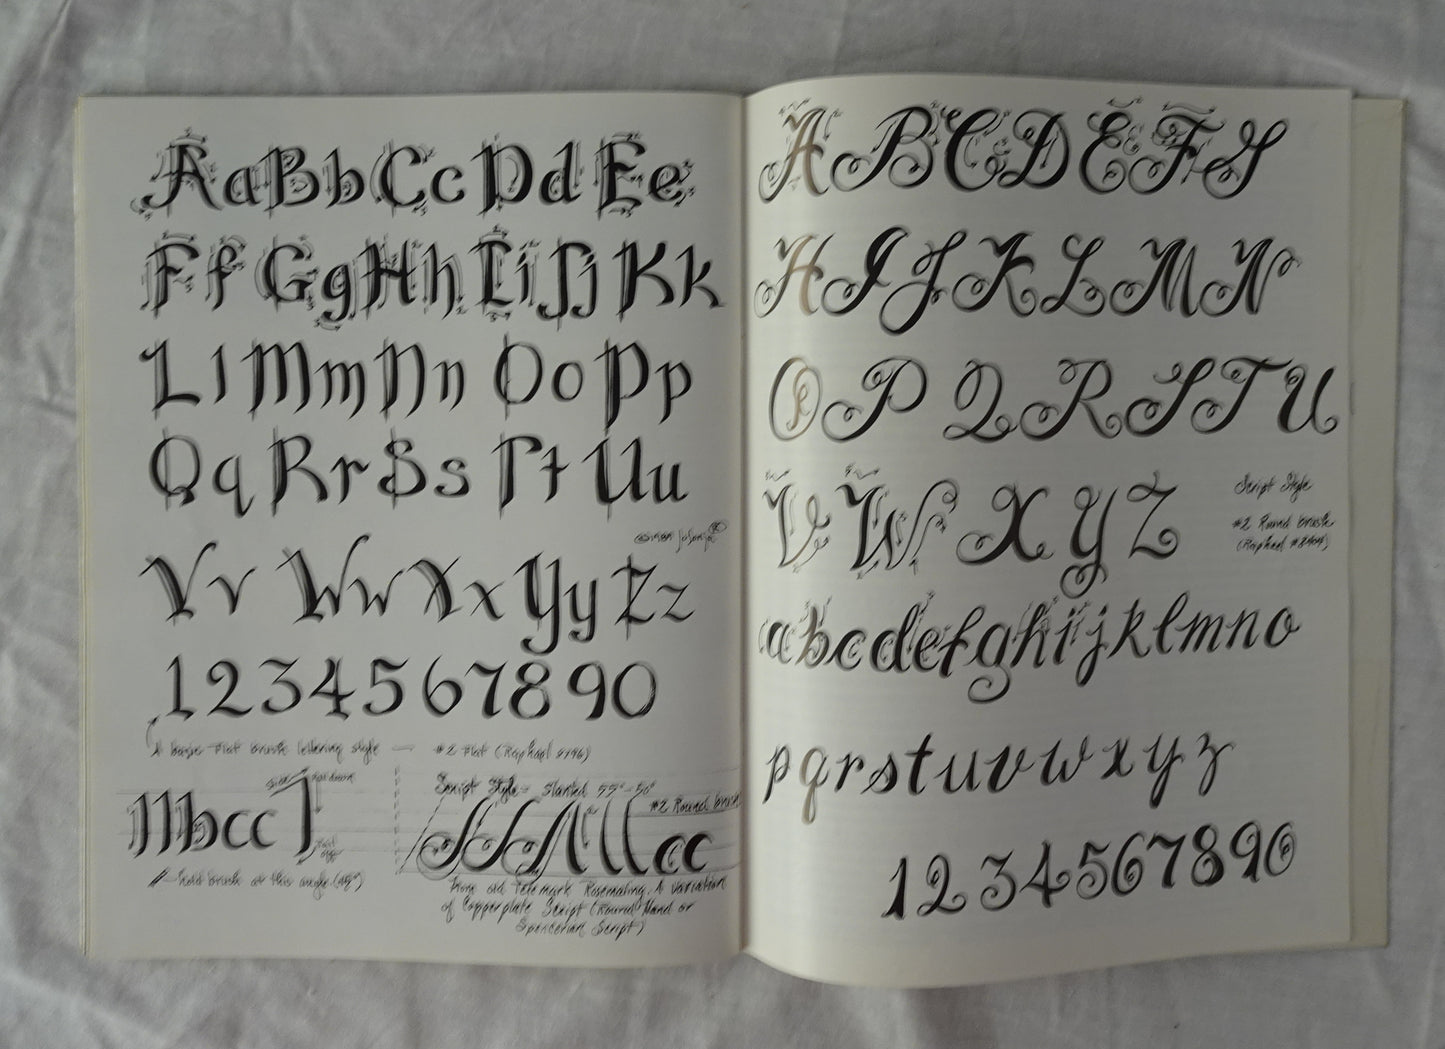 AaBbCcDdEe
FfGgHhIiJjKk
LlMmNnOoPp
QqRrSsTtUu
VvWwXxYyZz
1234567890
A basic flat brush lettering style — #2 Flat (Raphael
hold brush at this angle (45°)
Script Style - Slanted 55°-50°
#2 Round brush
cc
From old Telemark Rosemaling. A variation
of Copperplate Script (Round Hand or
Spencerian Script)
ABCDEFG
HIJKLMN
OPQRSTU
VWXYZ
Script Style
#2 Round brush
(Raphael #8404)
abcdefghijklmno
pqrstuvwxyz
1234567890